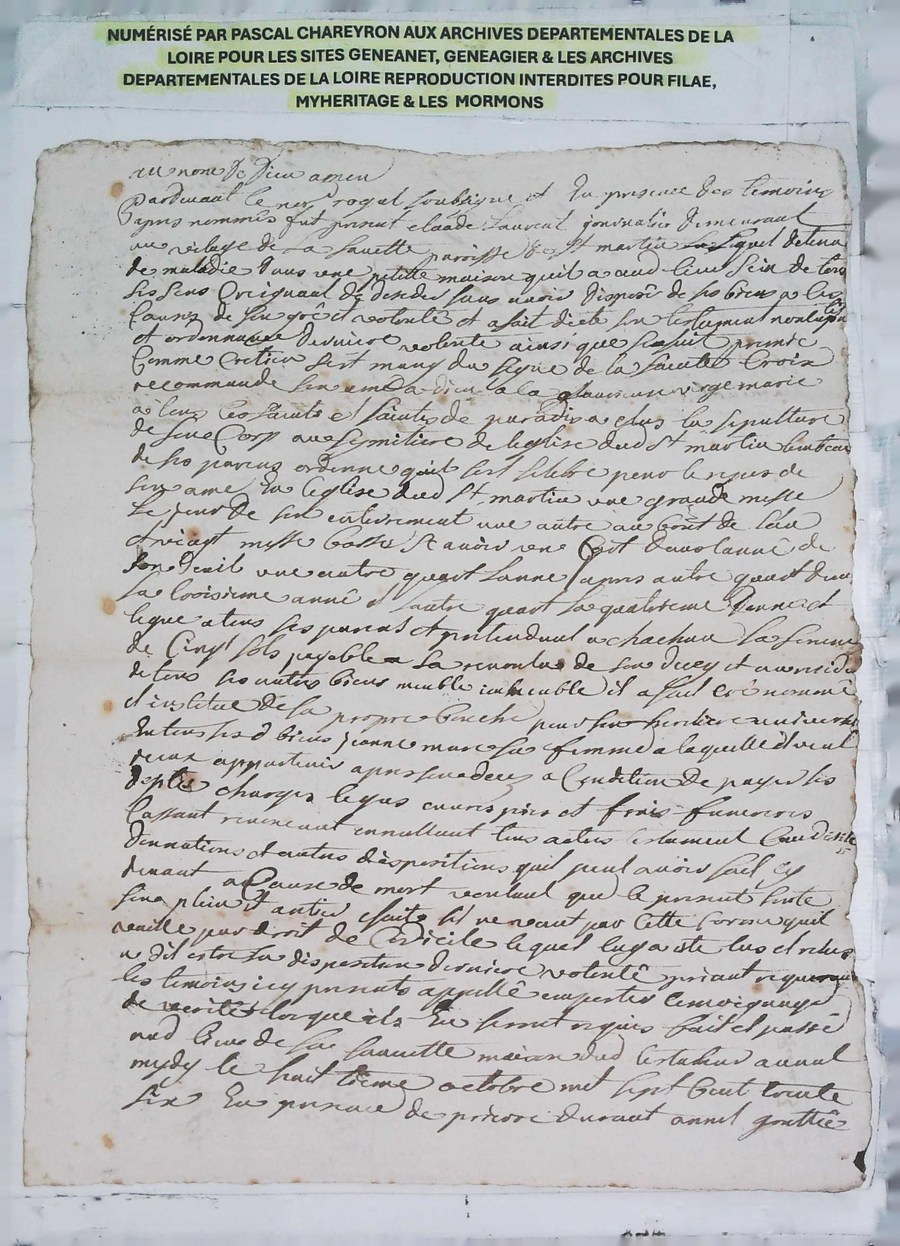 NUMÉRISÉ PAR PASCAL CHAREYRON AUX ARCHIVES DEPARTEMENTALES DE LA
LOIRE POUR LES SITES GENEANET, GENEAGIER & LES ARCHIVES
DEPARTEMENTALES DE LA LOIRE REPRODUCTION INTERDITES POUR FILAE,
MYHERITAGE & LES MORMONS
au nom de Dieu amen
Pardevant le no.re royal soubsigne et en presence des temoins
apres nommés fut present claude Laurent journalier demeurant
au vilage de la sauvette paroisse de st martin lequel detenu
de maladie dans une petitte maison quil a aud lieu sein de tous
ses sens Creignant de deseder sans avoir disposé de ses biens a
de son gre et volonté et a fait et dicté son testament
et ordonnance derniere volonté ainsi que sensuit primie
Comme Cretien sest muny du signe de la sainte Croix
recommande son ame a dieu a la glorieuse vierge marie
a tous les saints et saintes de paradis a elus la sepulture
de son Corp au semitiere de leglise dud st martin tombeau
de ses parens ordonne quil soit selebré pour le repos de
son ame en leglise dud st martin une grande messe
le jour de son enterrement une autre au bout de lan
et vingt messe basse savoir un Cart dans lanné de
son deuil une autre quart lanné apres autre quart dans
la troisieme anné et lautre quart la quatrieme Donne et
legue a tous ses parens et pretendant a chachun la somme
de Cinq sols payable a la de son deces et au residu
de tous ses autres biens meuble immeuble il a fait créé nommé
et institue de sa propre bouche pour son heritiere universelle
en tous sesd biens jeanne mure sa femme a laquelle il veut
iceux appartenir apres son deces a Condition de payer ses
deptes charges legas euvres pies et frais funerers
Cassant revocant annullant tous autres testament Codicile
Donnations et autres dispositions quil peut avoir fait cy
devant a Cause de mort voulant que le present sorte
son plein et antier effaits sil ne vaut par cette forme quil
vaille par droit de Codicile lequel luy a eté lus et relus
a dit estre sa disposition derniere volonté priant requerant
les temoins icy presents appellé emporter temoignage
de verité lorque ils en seront requis fait et passé
aud lieu de la sauvette maison dud testateur avant
mydy le huit tieme octobre mil sept Cent trente
six En presence de pierre durant annet gouttée